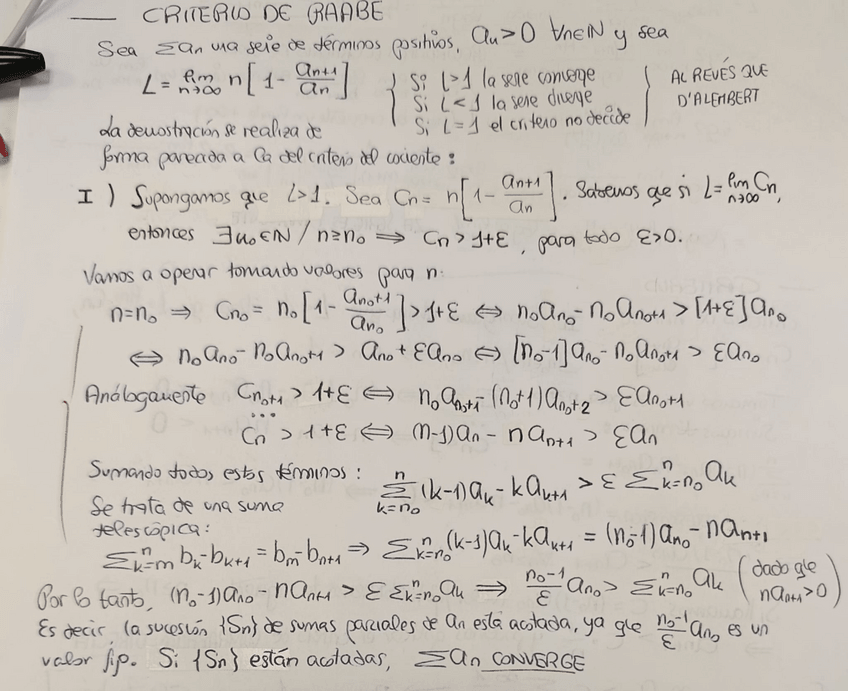 CRITERIO DE RAABE
Sea Σan una serie de términos positivos, an>0 ∀n∈ℕ y sea
L = lim n→∞ n[1 - an+1/an] { Si L>1 la serie converge
Si L<1 la serie diverge
Si L=1 el criterio no decide } AL REVÉS QUE
D'ALEMBERT
La demostración se realiza de
forma parecida a la del criterio del cociente:
I) Supongamos que L>1. Sea Cn = n[1 - an+1/an]. Sabemos que si L = lim n→∞ Cn,
entonces ∃n₀∈ℕ / n≥n₀ ⇒ Cn > 1+ε, para todo ε>0.
Vamos a operar tomando valores para n:
n=n₀ ⇒ Cn₀ = n₀[1 - an₀+1/an₀] > 1+ε ⇔ n₀an₀ - n₀an₀+1 > [1+ε]an₀
⇔ n₀an₀ - n₀an₀+1 > an₀ + εan₀ ⇔ [n₀-1]an₀ - n₀an₀+1 > εan₀
Análogamente Cn₀+1 > 1+ε ⇔ n₀an₀+1 - (n₀+1)an₀+2 > εan₀+1
...
Cn > 1+ε ⇔ (n-1)an - nan+1 > εan
Sumando todos estos términos: Σ k=n₀ n (k-1)ak - kak+1 > ε Σ k=n₀ n ak
Se trata de una suma
telescópica:
Σ k=m n bk - bk+1 = bm - bn+1 ⇒ Σ k=n₀ n (k-1)ak - kak+1 = (n₀-1)an₀ - nan+1
Por lo tanto, (n₀-1)an₀ - nan+1 > ε Σ k=n₀ n ak ⇒ n₀-1/ε an₀ > Σ k=n₀ n ak (dado que
nan+1>0)
Es decir la sucesión {Sn} de sumas parciales de an está acotada, ya que n₀-1/ε an₀ es un
valor fijo. Si {Sn} están acotadas, Σan CONVERGE